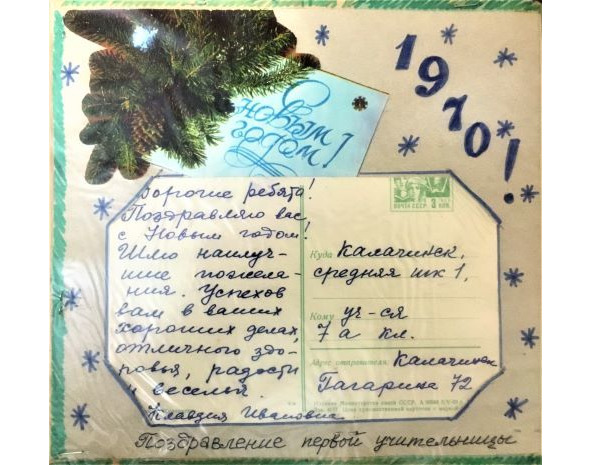 1970!
С
новым
годом!
Дорогие ребята!
Поздравляю вас
с Новым годом!
Шлю наилуч-
шие пожела-
ния. Успехов
вам в ваших
хороших делах,
отличного здо-
ровья, радости
и веселья.
Клавдия Ивановна
ПОЧТА СССР 3 КОП.
Куда Калачинск,
средняя шк 1,
Кому уч-ся
7 а кл.
Адрес отправителя: Калачинск
Гагарина 72
Министерство связи СССР.
Поздравление первой учительницы